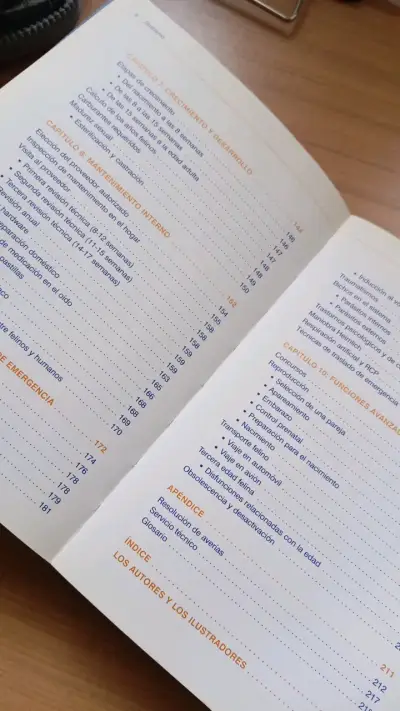 CAPÍTULO 7: CRECIMIENTO Y DESARROLLO 144
Etapas de crecimiento 146
• Del nacimiento a las 8 semanas 146
• De las 8 a las 15 semanas 147
• De las 15 semanas a la edad adulta 147
Cálculo de los años felinos 148
Carburantes requeridos 148
Madurez sexual 149
• Esterilización y castración 150
CAPÍTULO 8: MANTENIMIENTO INTERNO 152
Elección del proveedor autorizado 154
Inspección de mantenimiento en el hogar
Visita al proveedor
• Primera revisión técnica (8-12 semanas)
• Segunda revisión técnica (11-15 semanas)
• Tercera revisión técnica (14-17 semanas)
revisión anual
hardware
reparación doméstico
de medicación en el oído
pastillas
entre felinos y humanos
170
DE EMERGENCIA
172
174
176
178
178
179
181
• Inducción al
Traumatismos
Bichos en el sistema
• Parásitos internos
• Parásitos externos
Trastornos psicológicos y de
Maniobra Heimlich
Respiración artificial y RCP
Técnicas de traslado de emergencia
CAPÍTULO 10: FUNCIONES AVANZADAS
Concursos
Reproducción
• Selección de una pareja
• Apareamiento
• Embarazo
• Control prenatal
• Preparación para el nacimiento
• Nacimiento
Transporte felino
• Viaje en automóvil
• Viaje en avión
Tercera edad felina
• Disfunciones relacionadas con la edad
Obsolescencia y desactivación
APÉNDICE 211
Resolución de averías 212
Servicio técnico 217
Glosario
ÍNDICE
LOS AUTORES Y LOS ILUSTRADORES